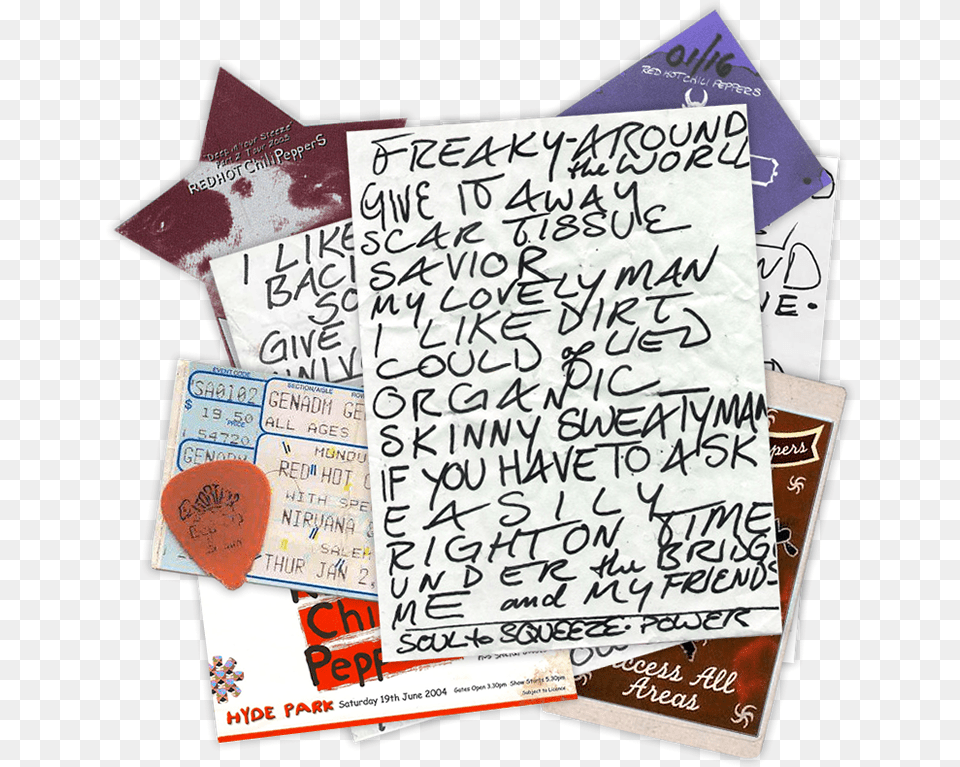 01/16
RED HOT CHILI PEPPERS
"Deep In Your Steeze"
Part 2 Tour 2003
RED HOT Chili Peppers
FREAKY-AROUND
the WORLL
GIVE IT AWAY
SCAR TISSUE
SAVIOR
MY LOVELY MAN
I LIKE DIRT
COULD of LIED
ORGAN DIC
SKINNY SWEATYMAN
IF YOU HAVE TO ASK
EASILY
RIGHT ON TIME
UNDER the BRIDG
ME and MY FRIENDS
SOUL to SQUEEZE · POWER
I LIKE
BAC
SO
GIVE
UNIV
ND
NE.
EVENT CODE
SA0102
$ 19.50
PRICE
54720
GENADM
SECTION/AISLE
ROW
GENADM GE
ALL AGES
MONDU
RED HOT C
WITH SPE
NIRVANA &
SALEM
THUR JAN 2
Chi
Pepp
HYDE PARK
Saturday 19th June 2004
Gates Open 3.30pm Show Starts 5.30pm
Subject to Licence
ppers
ccess All
Areas